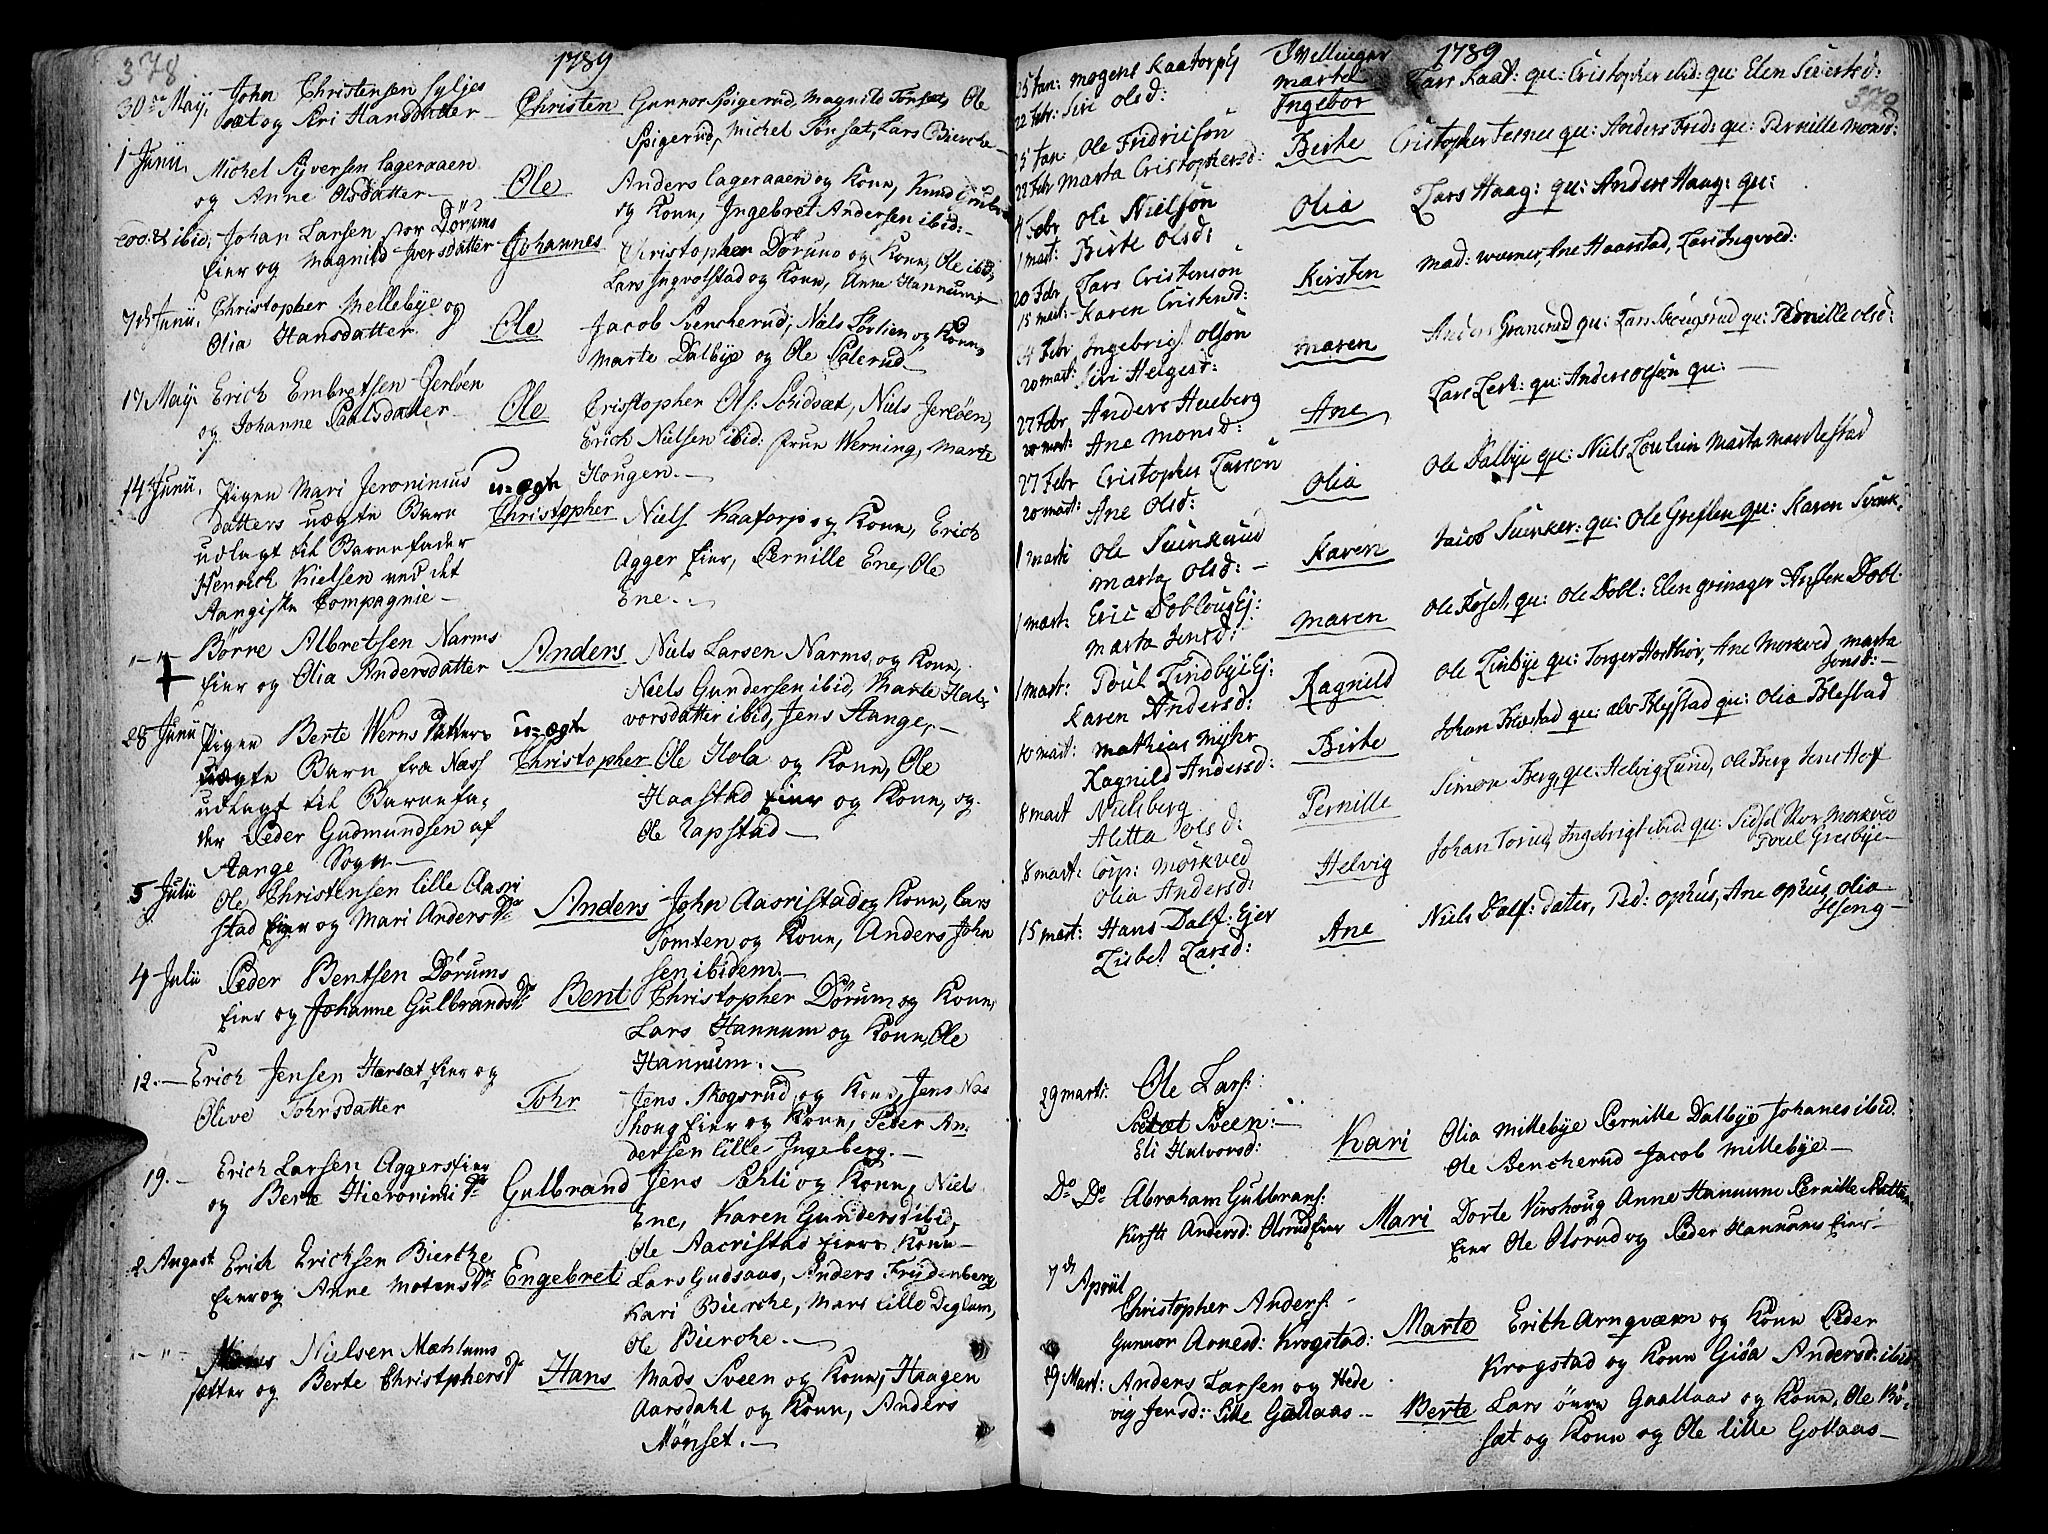 378
1789
30te May. John Christensen Syljes
sæt og Siri Hansdatter — Christen Gunnor Spigerud, Magnild Tønset, Ole
Spigerud, Michel Tønsæt, Lars Bierche —
1 Junii. Michel Syversen Lageraaen
og Anne Olsdatter — Ole Anders Lageraaen og Konn, Knud
og Konn, Ingebret Andersen ibid: —
eod: & ibid: Johan Larsen stor Dörums
Eier og Magnild Iversdatter Johannes Christopher Dörum og Konn, Ole ibid,
Lars Ingvolstad og Konn, Anne Hannum —
7de Junii. Christopher Mellebye og
Olia Hansdatter. Ole Jacob Svencherud, Niels Lörlien og Konn,
Marte Dalbye og Ole Palerud —
17 May. Erich Embretsen Jerlöen
og Johanne Paalsdatter Ole Cristopher Ols: Schidsæt, Niels Jerlöen,
Erich Nielsen ibid: Frue Werning, Marte
Hougen. —
14 Junii. Pigen Mari Jeroninius
datters uægte Barn
udlagt til Barnefader
Henrich Nielsen ved det
Aangiske Compagnie —
u=ægte
Christopher Niels Kaatorp og Konn, Erich
Agger Eier, Pernille Ene, Ole
Ene. —
" — " — Börre Albretsen Narms
Eier og Olia Andersdatter Anders Niels Larsen Narms og Konn,
Niels Gundersen ibid, Marte Hal=
vorsdatter ibid, Jens Stange, —
28 Junii Pigen Berte Werns Datters
uægte Barn fra Næss
udlagt til Barnefa=
der Peder Gudmundsen af
Stange Sogn. —
u=ægte
Christopher Ole Hola og Konn, Ole
Haastad Eier og Konn, og
Ole Tapstad —
5 Julii Ole Christensen lille Aasri
stad Eier og Mari Anders Dr Anders John Aasristad og Konn, Lars
Tomten og Konn, Anders John
sen ibidem. —
4 Julii Peder Bentsen Dörums
Eier og Johanne Gulbrands Dr Bent Christopher Dörum og Konn,
Lars Hannum og Konn, Ole
Hannum. —
12. — Erich Jensen Harsæt Eier og
Olive Tohrsdatter Tohr Jens Skogsrud og Konn, Jens Næs
houg Eier og Konn, Peter An=
dersen lille Ingeberg. —
19. — Erich Larsen Aggers Eier
og Berte Hieronimi Dr Gulbrand Jens Sæhli og Konn, Niels
Ene, Karen Gundersd: ibid,
Ole Aacristad Eiers Konn —
2 August Erich Erichsen Bierche
Eier og Anne Motens Dr Engebret Lars Gudsaas, Anders Frydenberg
Kari Bierche, Mari lille Deglum,
Ole Bierche. —
" — " — Nielsen Mæhlums
sætter og Berte Christphers Dr Hans Mads Sveen og Konn, Haagen
Aarsdahl og Konn, Anders
Mönset. —
1789
379
25 Jan: Mogens Kaatorp Ej Tvillinger
22 Febr: Siri Olsd: Marte Ingebor Lars Kaat: qu: Cristopher ibid: qu: Elen Sivertsd:
25 Jan: Ole Fridricsön
22 Febr Marta Cristophersd: Birte Cristopher Ternes qu: Anders Frid: qu: Pernille Monsd:
Febr Ole Nielsön
1 Mart: Birte Olsd: Olia Lars Haag: qu: Anders Haag: qu:
20 Febr Lars Cristensön
15 Mart: Karen Cristensd: Kirsten Mad: Werner, Ane Haarstad, Lars Ingvold:
Febr Ingebrigt Olsön
20 Mart: Siri Helgesd: Maren Anders Granerud qu: Lars Skougsrud qu: Pernille Olsd:
27 Febr Anders Hueberg
20 Mart: Ane Monsd: Ane Lars Lert: qu: Anders Olsön qu: —
27 Febr Cristopher Larsön
20 Mart: Ane Olsd: Olia Ole Dalbye qu: Niels Loulien Marta Mardestad
1 Marti Ole Suinkerud
Marta Olsd: — Karen Jacob Suinker: qu: Ole Greften qu: Karen Svink.
1 Mart: Eric Dobloug Ej:
Marta Jensd: Maren Ole Koset, qu: Ole Dobl: Elen Grinager Ansten Dobl:
1 Mart: Poul Lindbye Ej:
Karen Andersd: Ragnild Ole Linbye qu: Torger Horthör, Ane Morkved Marta
Jonsd: —
10 Mart: Mathias Myhr
Ragnild Andersd: Birte Johan Blæstad qu: Blystad qu: Olia Blestad
8 Mart Niels berg
Alitta Olsd: Pernille Simon Berg qu: Helvig Lund, Ole Berg Jens Hof
8 Mart: Corp: Morkved
Olia Andersd: Helvig Johan Torud, Ingebrigt ibid: qu: Sidsel Stor Morkved
Poul Gresbye —
15 Mart: Hans Dalf: Ejer
Lisbet Larsd: Ane Niels Dalf: dater, Ped: Ophus, Ane Ophus, Olia
Hseng —
29 Marti: Ole Lars:
Sveen: —
Eli Halvorsd: Kari Olia Millebye Pernille Dalbye Johanes ibid.
Ole Bencherud Jacob Millebye. —
Do Do Abraham Gulbrans:
Kirsti Andersd: Olsrud Eier Mari Dorte Virshoug Anne Hannum Pernille
Eier Ole Olsrud og Peder Hannums Eier —
7de Apriil
Christopher Anders: —
Gunnor Arnesd: Krogstad: Marte Erich Arnqværn og Konn Peder
Krogstad og Konn Giöa Andersd: ibid
29 Mart: Anders Larsen og Hede
vig Jensd: Lille Gaallaas — Berte Lars övre Gaallaas og Konn, Ole Rö=
sæt og Konn og Ole lille Gollaas —